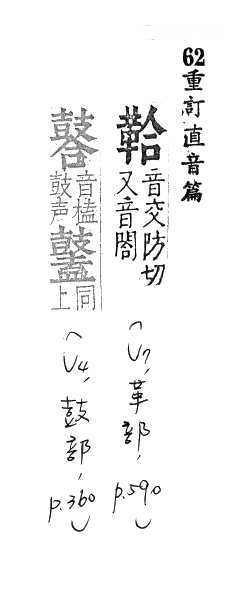 62重訂直音篇
鞈音交防切又音閤
(V7, 革部, p.590)
鼛音榼鼓声𪔣同上
(V4, 鼓部, p.360)